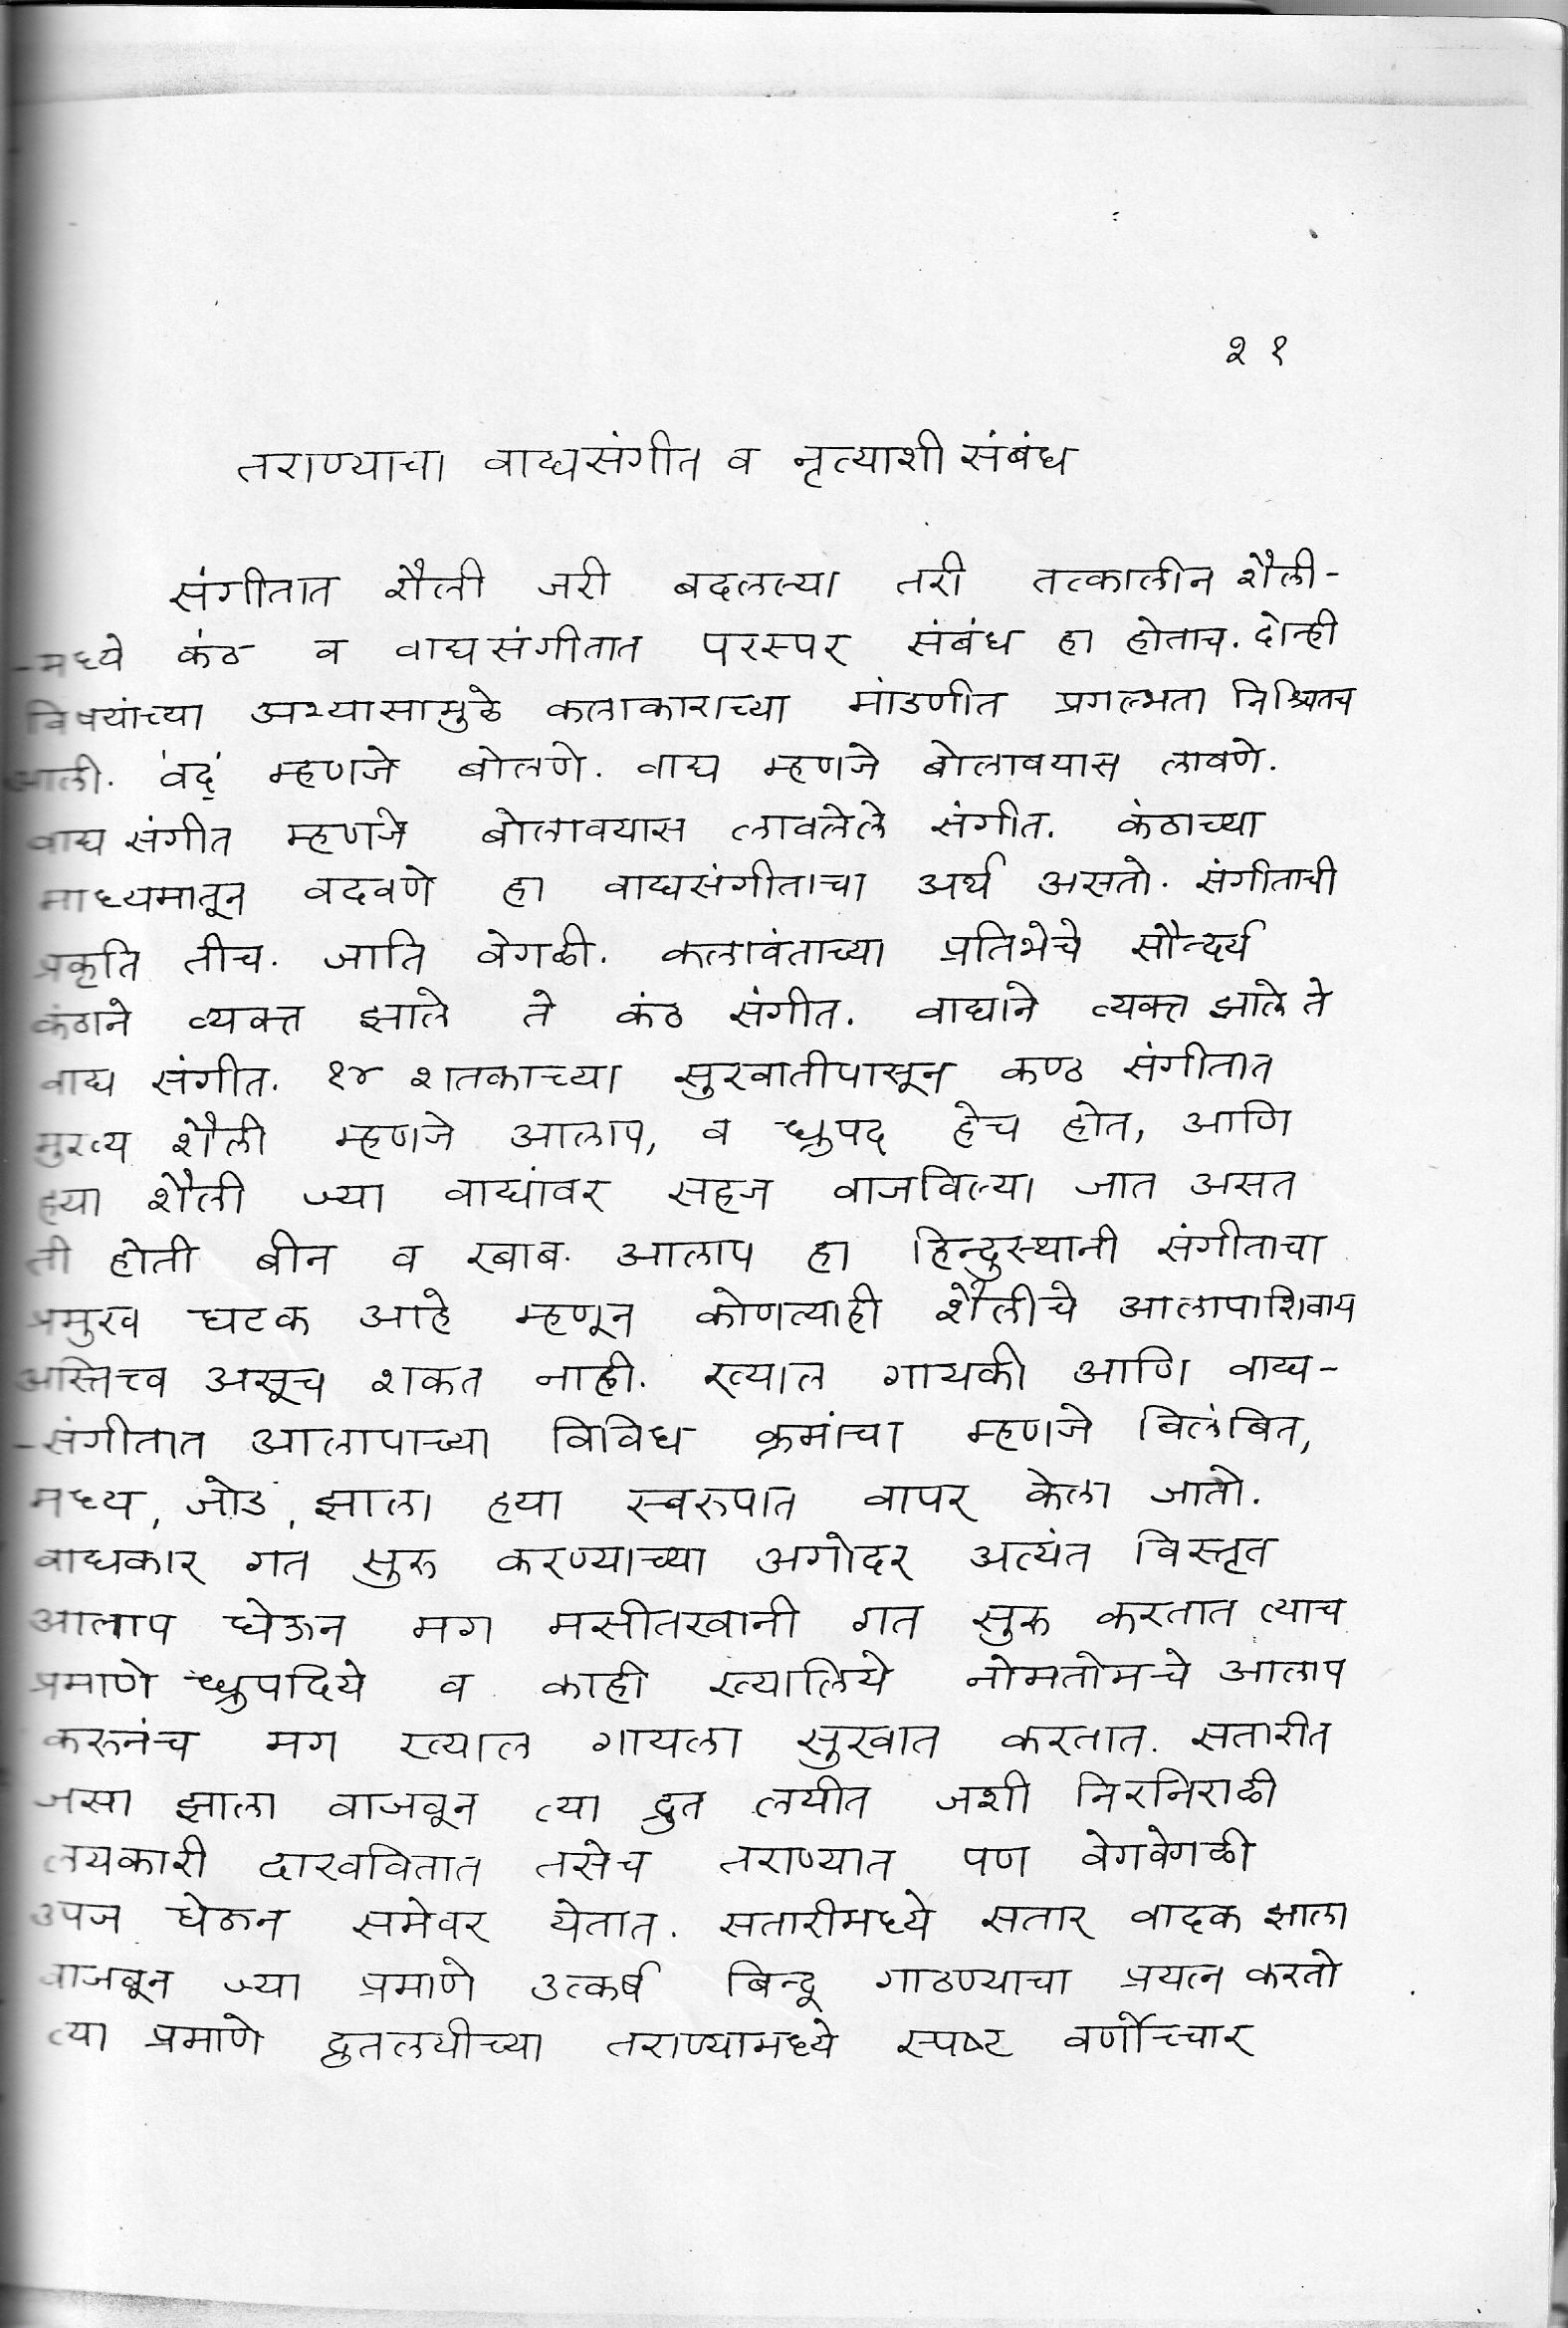 २१
तराण्याचा वाद्यसंगीत व नृत्याशी संबंध
संगीतात शैली जरी बदलल्या तरी तत्कालीन शैली-
-मध्ये कंठ व वाद्यसंगीतात परस्पर संबंध हा होताच. दोन्ही
विषयांच्या अभ्यासामुळे कलाकाराच्या मांडणीत प्रगल्भता निश्चितच
आली. 'वद्' म्हणजे बोलणे. वाद्य म्हणजे बोलावयास लावणे.
वाद्य संगीत म्हणजे बोलावयास लावलेले संगीत. कंठाच्या
माध्यमातून वदवणे हा वाद्यसंगीताचा अर्थ असतो. संगीताची
प्रकृति तीच. जाति वेगळी. कलावंताच्या प्रतिभेचे सौन्दर्य
कंठाने व्यक्त झाले ते कंठ संगीत. वाद्याने व्यक्त झाले ते
वाद्य संगीत. १४ शतकाच्या सुरवातीपासून कण्ठ संगीतात
मुख्य शैली म्हणजे आलाप, व ध्रुपद हेच होत, आणि
ह्या शैली ज्या वाद्यांवर सहज वाजविल्या जात असत
ती होती बीन व रबाब. आलाप हा हिन्दुस्थानी संगीताचा
प्रमुख घटक आहे म्हणून कोणत्याही शैलीचे आलापाशिवाय
अस्तित्त्व असूच शकत नाही. ख्याल गायकी आणि वाद्य-
-संगीतात आलापाच्या विविध क्रमांचा म्हणजे विलंबित,
मध्य, जोड, झाला ह्या स्वरुपात वापर केला जातो.
वाद्यकार गत सुरु करण्याच्या अगोदर अत्यंत विस्तृत
आलाप घेऊन मग मसीतखानी गत सुरु करतात त्याच
प्रमाणे ध्रुपदिये व काही ख्यालिये नोमतोमचे आलाप
करुनंच मग ख्याल गायला सुरवात करतात. सतारीत
जसा झाला वाजवून त्या द्रुत लयीत जशी निरनिराळी
लयकारी दाखवितात तसेच तराण्यात पण वेगवेगळी
उपज घेऊन समेवर येतात. सतारीमध्ये सतार वादक झाला
वाजवून ज्या प्रमाणे उत्कर्ष बिन्दू गाठण्याचा प्रयत्न करतो
त्या प्रमाणे द्रुतलयीच्या तराण्यामध्ये स्पष्ट वर्णोच्चार